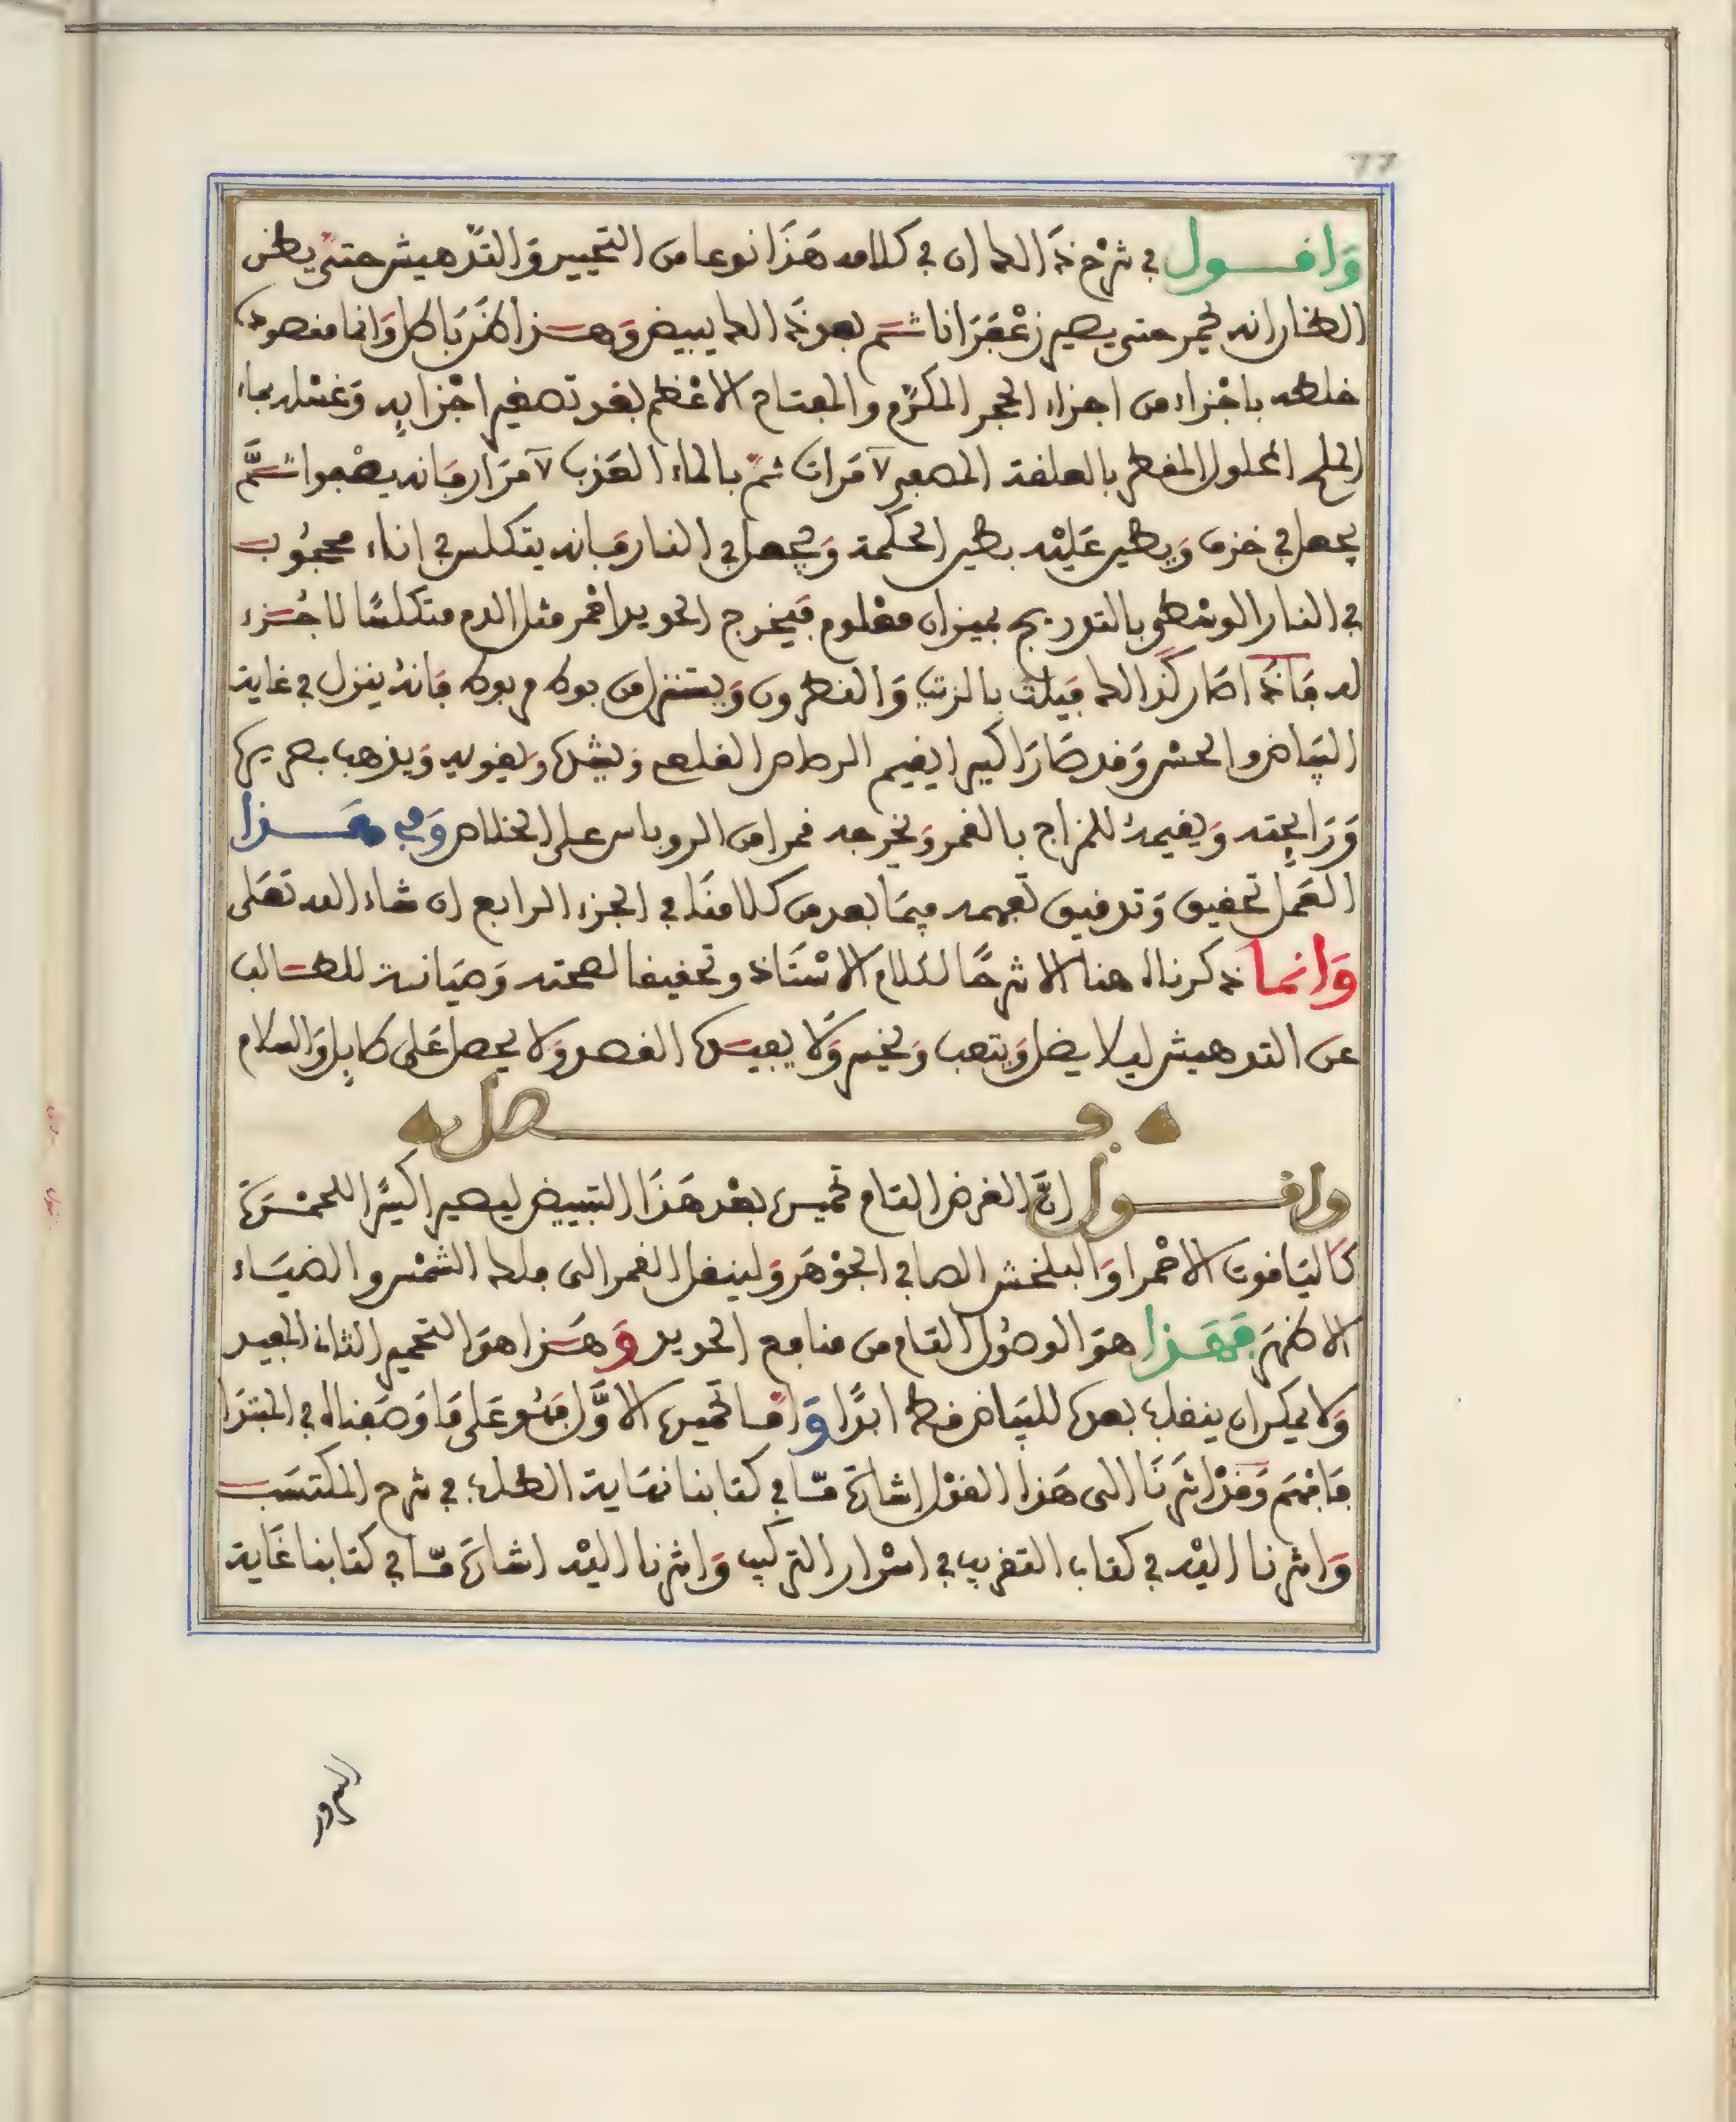 77
وَاقــول في شرْح ذَلك ان في كلامه هَذَا نوعا من التحيير وَالتّدهيش حتىّ يظن
الظان انه يحمر حتى يصير زعْفَرَانا ثــم بعد ذَلك يبيض وَهــذا ظنَ بَاطل وَانما مقصوده
خلطه باجْزاء من اجزاء الحجر المكرّم والمفتاح الاعْظم بعْد تصغير اجْزايِه وَغسْله بماء
الملح المحلول المقطر بالعلقة المصعد ٧ مَرات ثمّ بالماء العَذب ٧ مرَار فَانه يصْفوا ثــمَّ
يجعل في خزف وَيطين عَليْه بطين الحكمة وَيجعل في النار فَانه يتكلس في انا محجُوب
في النار الوسْطى بالتدريج بميزان معْلوم فيَخرج الحديد احْمر مثل الدم متكلسًا لا جُــزء
له فَاذا صَار كذَلك فيلت بالزيت وَالنطرون وَيستنزل من بوط بربوط فَانهُ ينزل في غاية
البيَاض والحسْن وَقد صَارَ اكسيرا يقيم الرصاص القلعي وَيشده وَيقويه وَيذهب بصريره
وَرَايِحته وَيقيمهُ للمزاج بالقمر وَيخرجه قمرا من الروباس على الخلاص وَفي هَــذا
العَمل تحقيق وَتدقيق تفهمه فيمَا بعد من كلامنَا في الجزء الرابع ان شاء الله تعَلى
وَانما ذكرناه هنا الا شرحًا لكلام الاسْتَاذ وتحقيقا لصحته وَصيَانــة للطــالب
عن التدهيش ليلا يضل وَيتعب وَيخسر وَلا يفيــده القصد وَلا يحصل عَلى طايِل وَالسلام
فــــصل
واقــول انَّ الغرض التام تحميره بعْد هَذَا التبييض ليصير اكسيْرًا للحمْــرَة
كاليَاقوت الاحْمر اوَ البلخش الصافي الجوْهَر وَلينقل القمر الى فلك الشمْس والضيَــاء
الاظهَر فَهَــذا هوَ الوصُول التام من منافع الحديد وَهــذا هوَ التحمير الثاني المفيد
وَلا يمكن ان ينقله بعده للبيَاض قط ابدًا وَامــا تحميره الاوَّل فهُو عَلى مَا وَصَفناه في المبتدَا
فَافهَم وَقدْ اشرْنَا الى هَذا القوْل اشارَة مــا في كتابنا نهَاية الطلب في شرح المكتسَــب
وَاشرنا اليْه في كتاب التقريب في اسْرار التركيب وَاشرنا اليْه اشارَة مــا في كتابنا غَاية
السرور